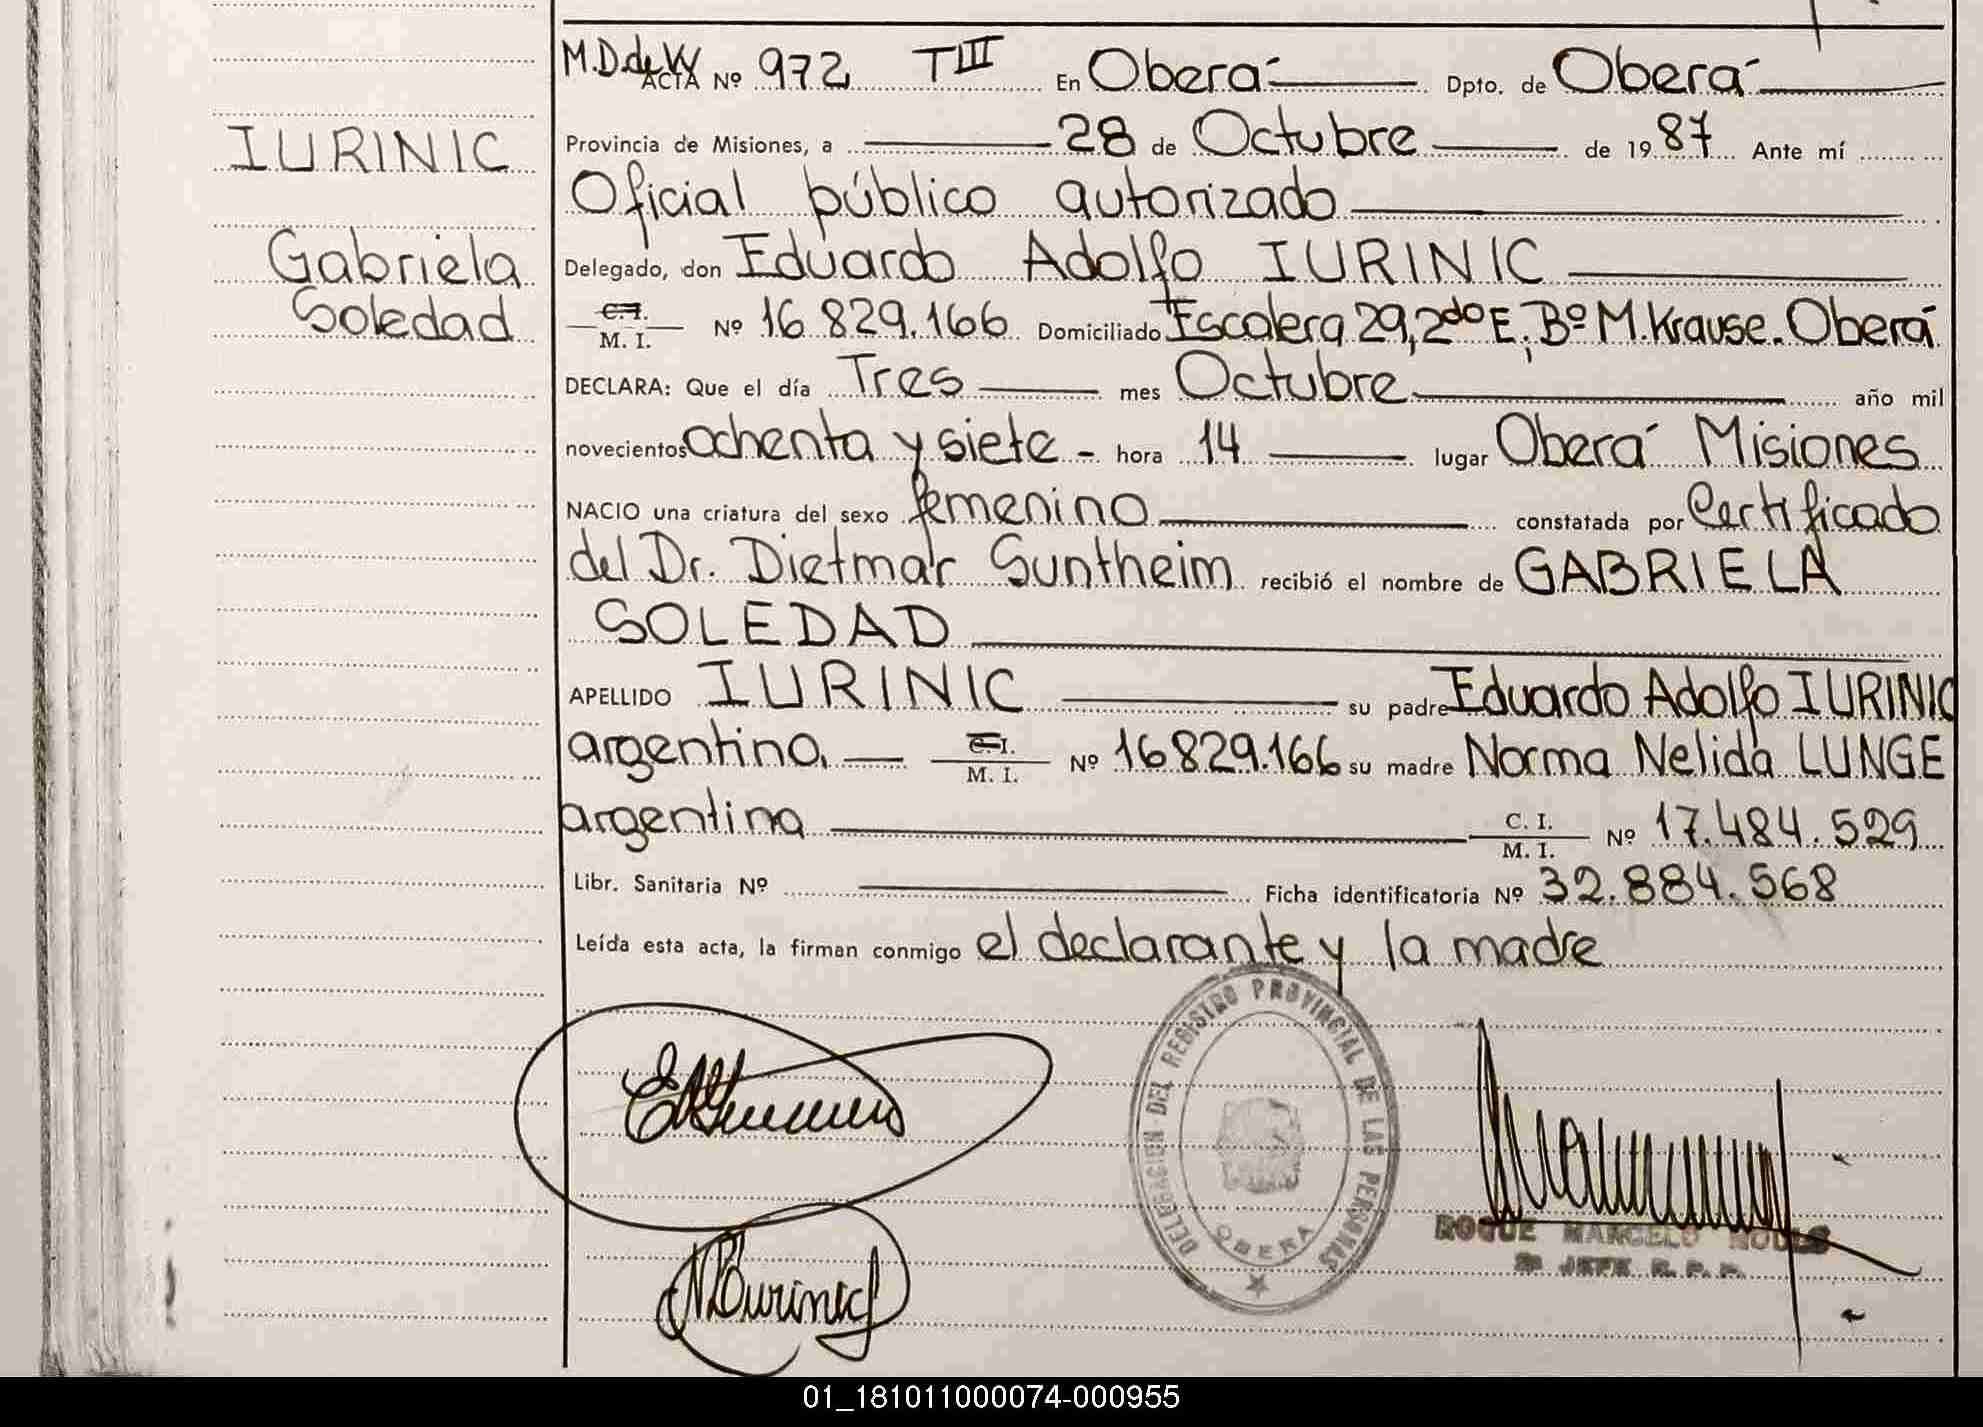 M.D.de W
ACTA Nº 972 TIII En Oberá Dpto. de Oberá
IURINIC
Provincia de Misiones, a 28 de Octubre de 1987 Ante mí
Oficial público autorizado
Gabriela
Soledad
Delegado, don Eduardo Adolfo IURINIC
C.I.
M. I. Nº 16.829.166 Domiciliado Escalera 29, 2do E, Bº M. Krause. Oberá
DECLARA: Que el día Tres mes Octubre año mil
novecientos ochenta y siete - hora 14 lugar Oberá Misiones
NACIO una criatura del sexo femenino constatada por Certificado
del Dr. Dietmar Suntheim recibió el nombre de GABRIELA
SOLEDAD
APELLIDO IURINIC su padre Eduardo Adolfo IURINIC
argentino, C.I.
M. I. Nº 16829.166 su madre Norma Nelida LUNGE
argentina C. I.
M. I. Nº 17.484.529
Libr. Sanitaria Nº Ficha identificatoria Nº 32.884.568
Leída esta acta, la firman conmigo el declarante y la madre
DELEGACION DEL REGISTRO PROVINCIAL DE LAS PERSONAS
OBERA
ROQUE MARCELO
JEFE R. P. P.
01_181011000074-000955